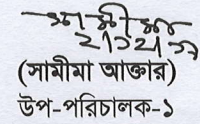 (সামীমা আক্তার)
উপ-পরিচালক-১